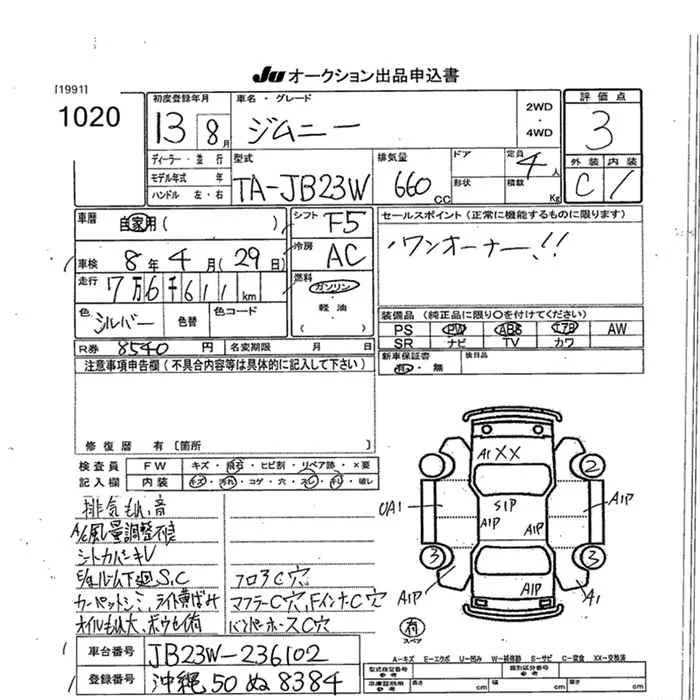 JU オークション出品申込書
[1991]
1020
初度登録年月 車名・グレード 2WD・4WD 評価点
13 8月 ジムニー 3
ディーラー・並行 型式 排気量 ドア 定員 4人 外装 内装
モデル年式 年 形状 積載 Kg C 1
ハンドル 左・右 TA-JB23W 660cc
車歴 自家用( ) シフト F5 セールスポイント(正常に機能するものに限ります)
車検 8年4月(29日) 冷房 AC ワンオーナー!!
走行 7万6千611km 燃料 ガソリン・軽油( )
色 シルバー 色替 色コード 装備品(純正品に限り○を付けてください)
PS PW ABS エアB AW
SR ナビ TV カワ
R券 8540円 名変期限 月 日 新車保証書 有・無 後日品
注意事項申告欄(不具合内容等は具体的に記入して下さい)
修復歴 有(箇所
検査員 FW キズ・飛石・ヒビ割・リペア跡・×要
記入欄 内装 キズ・汚れ・コゲ・穴・スレ・キレ・破レ
排気もれ音
A/C風量調整不良
シートカバーキレ
下廻S.C フロアC穴
カーペットシミ、ライト黄ばみ マフラーC穴、FインナーC穴
オイルもれ大、ボウセイ有 バンパーホースC穴
A1 XX
2
UA1 S1P A1P
A1P A1P
3 3
A1P A1P A1
有
スペア
車台番号 JB23W-236102
登録番号 沖縄50ぬ8384
A-キズ E-エクボ U-凹み W-補修跡 S-サビ C-腐食 XX-交換済
型式指定番号 参考 類別区分番号 参考
長さ cm 幅 cm 高さ cm